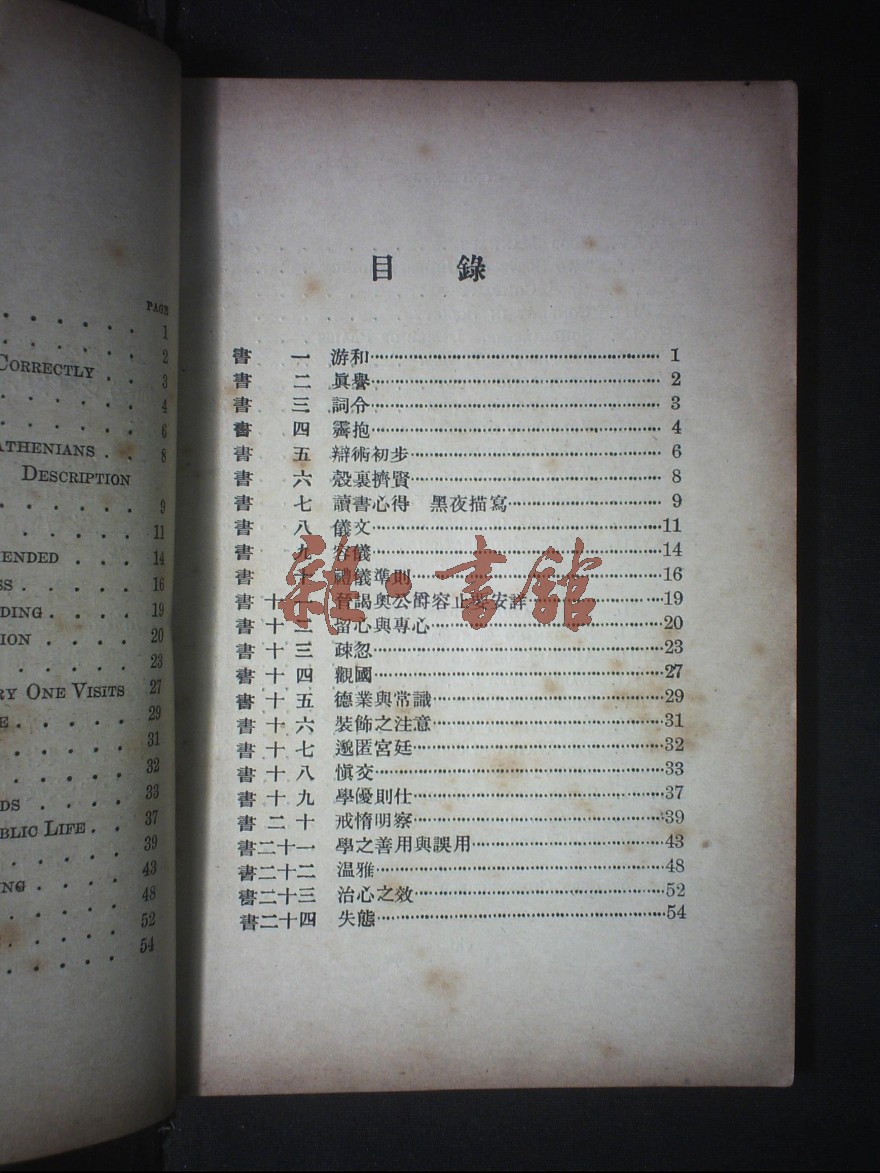 PAGE
1
2
CORRECTLY . . 3
4
6
ATHENIANS . . 8
DESCRIPTION
9
11
ENDED . . . 14
SS . . . . . 16
DING . . . . 19
TION . . . . 20
23
RY ONE VISITS 27
E . . . . . 29
31
32
DS . . . . 33
BLIC LIFE . . 37
39
43
NG . . . . 48
52
54
目 錄
書 一 游和 1
書 二 眞譽 2
書 三 詞令 3
書 四 霽抱 4
書 五 辯術初步 6
書 六 轂裏擠賢 8
書 七 讀書心得 黑夜描寫 9
書 八 儀文 11
書 九 容儀 14
書 十 禮儀準則 16
書 十 一 晉謁奥公爵容止要安詳 19
書 十 二 留心與專心 20
書 十 三 疎忽 23
書 十 四 觀國 27
書 十 五 德業與常識 29
書 十 六 裝飾之注意 31
書 十 七 邈匿宮廷 32
書 十 八 愼交 33
書 十 九 學優則仕 37
書 二 十 戒惰明察 39
書二十一 學之善用與誤用 43
書二十二 温雅 48
書二十三 治心之效 52
書二十四 失態 54
雜·書館